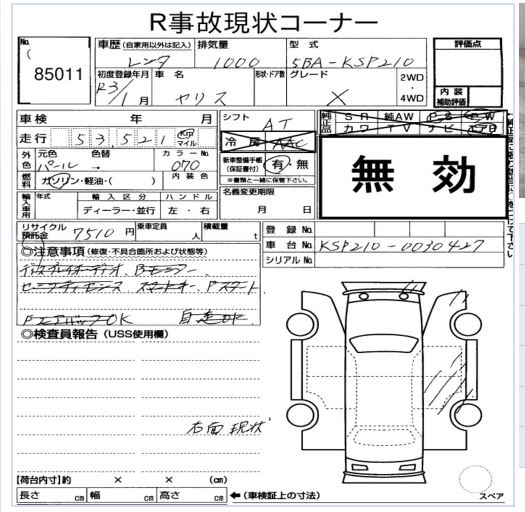 R事故現状コーナー
No.
85011
車歴 (自家用以外は記入) 排気量 型式
レンタ 1000 5BA-KSP210
初度登録年月 車名 形状・ドア数 グレード
R3/1月 ヤリス X
2WD
・
4WD
評価点
内装
補助評価
車検 年 月
走行 53,521 km マイル
シフト AT
冷房 AAC
純正品 SR 純AW PS PW
カワ TV ナビ エアB
外色 元色 色替 カラーNo.
パール → 070
内装色
燃料 ガソリン・軽油・( )
新車整備手帳 (保証書付) 有・無
※書類と一緒に保管下さい。
無効
輸入車用 年式 輸入区分 ハンドル
ディーラー・並行 左・右
名義変更期限
月 日
リサイクル預託金 7510円 乗車定員 人 積載量 t
登録No.
車台No. KSP210-0030427
シリアルNo.
◎注意事項 (修復・不具合箇所および状態等)
ディスプレイオーディオ、Bモニター
セーフティセンス スマートキー、Pスタート
FエアバッグOK 自走OK
◎検査員報告 (USS使用欄)
右面現状
【荷台内寸】約 × × (cm)
長さ cm 幅 cm 高さ cm ←(車検証上の寸法)
スペア